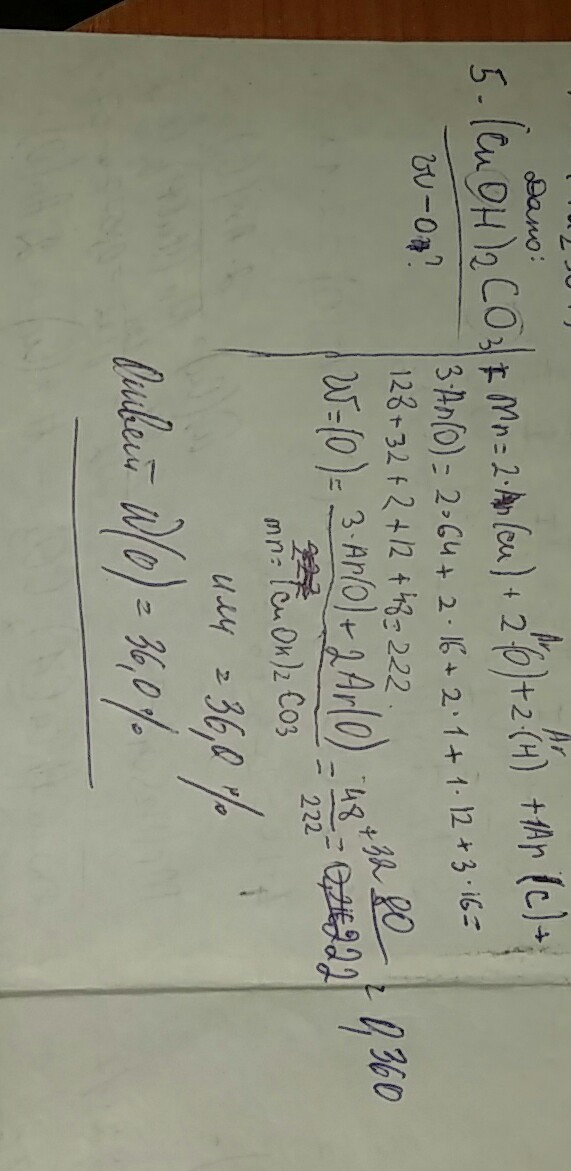 Дано:
5 - (CuOH)2CO3
W - O - ?
Mr = 2·Ar(Cu) + 2·Ar(O) + 2·Ar(H) + 1Ar(C) +
3·Ar(O) = 2·64 + 2·16 + 2·1 + 1·12 + 3·16 =
128 + 32 + 2 + 12 + 48 = 222.
W = (O) = 3·Ar(O) + 2Ar(O) / mr = (CuOH)2CO3 = 48 + 32 / 222 = 80 / 222 = 0,360
или = 36,0 %
Ответ - W(O) = 36,0 %